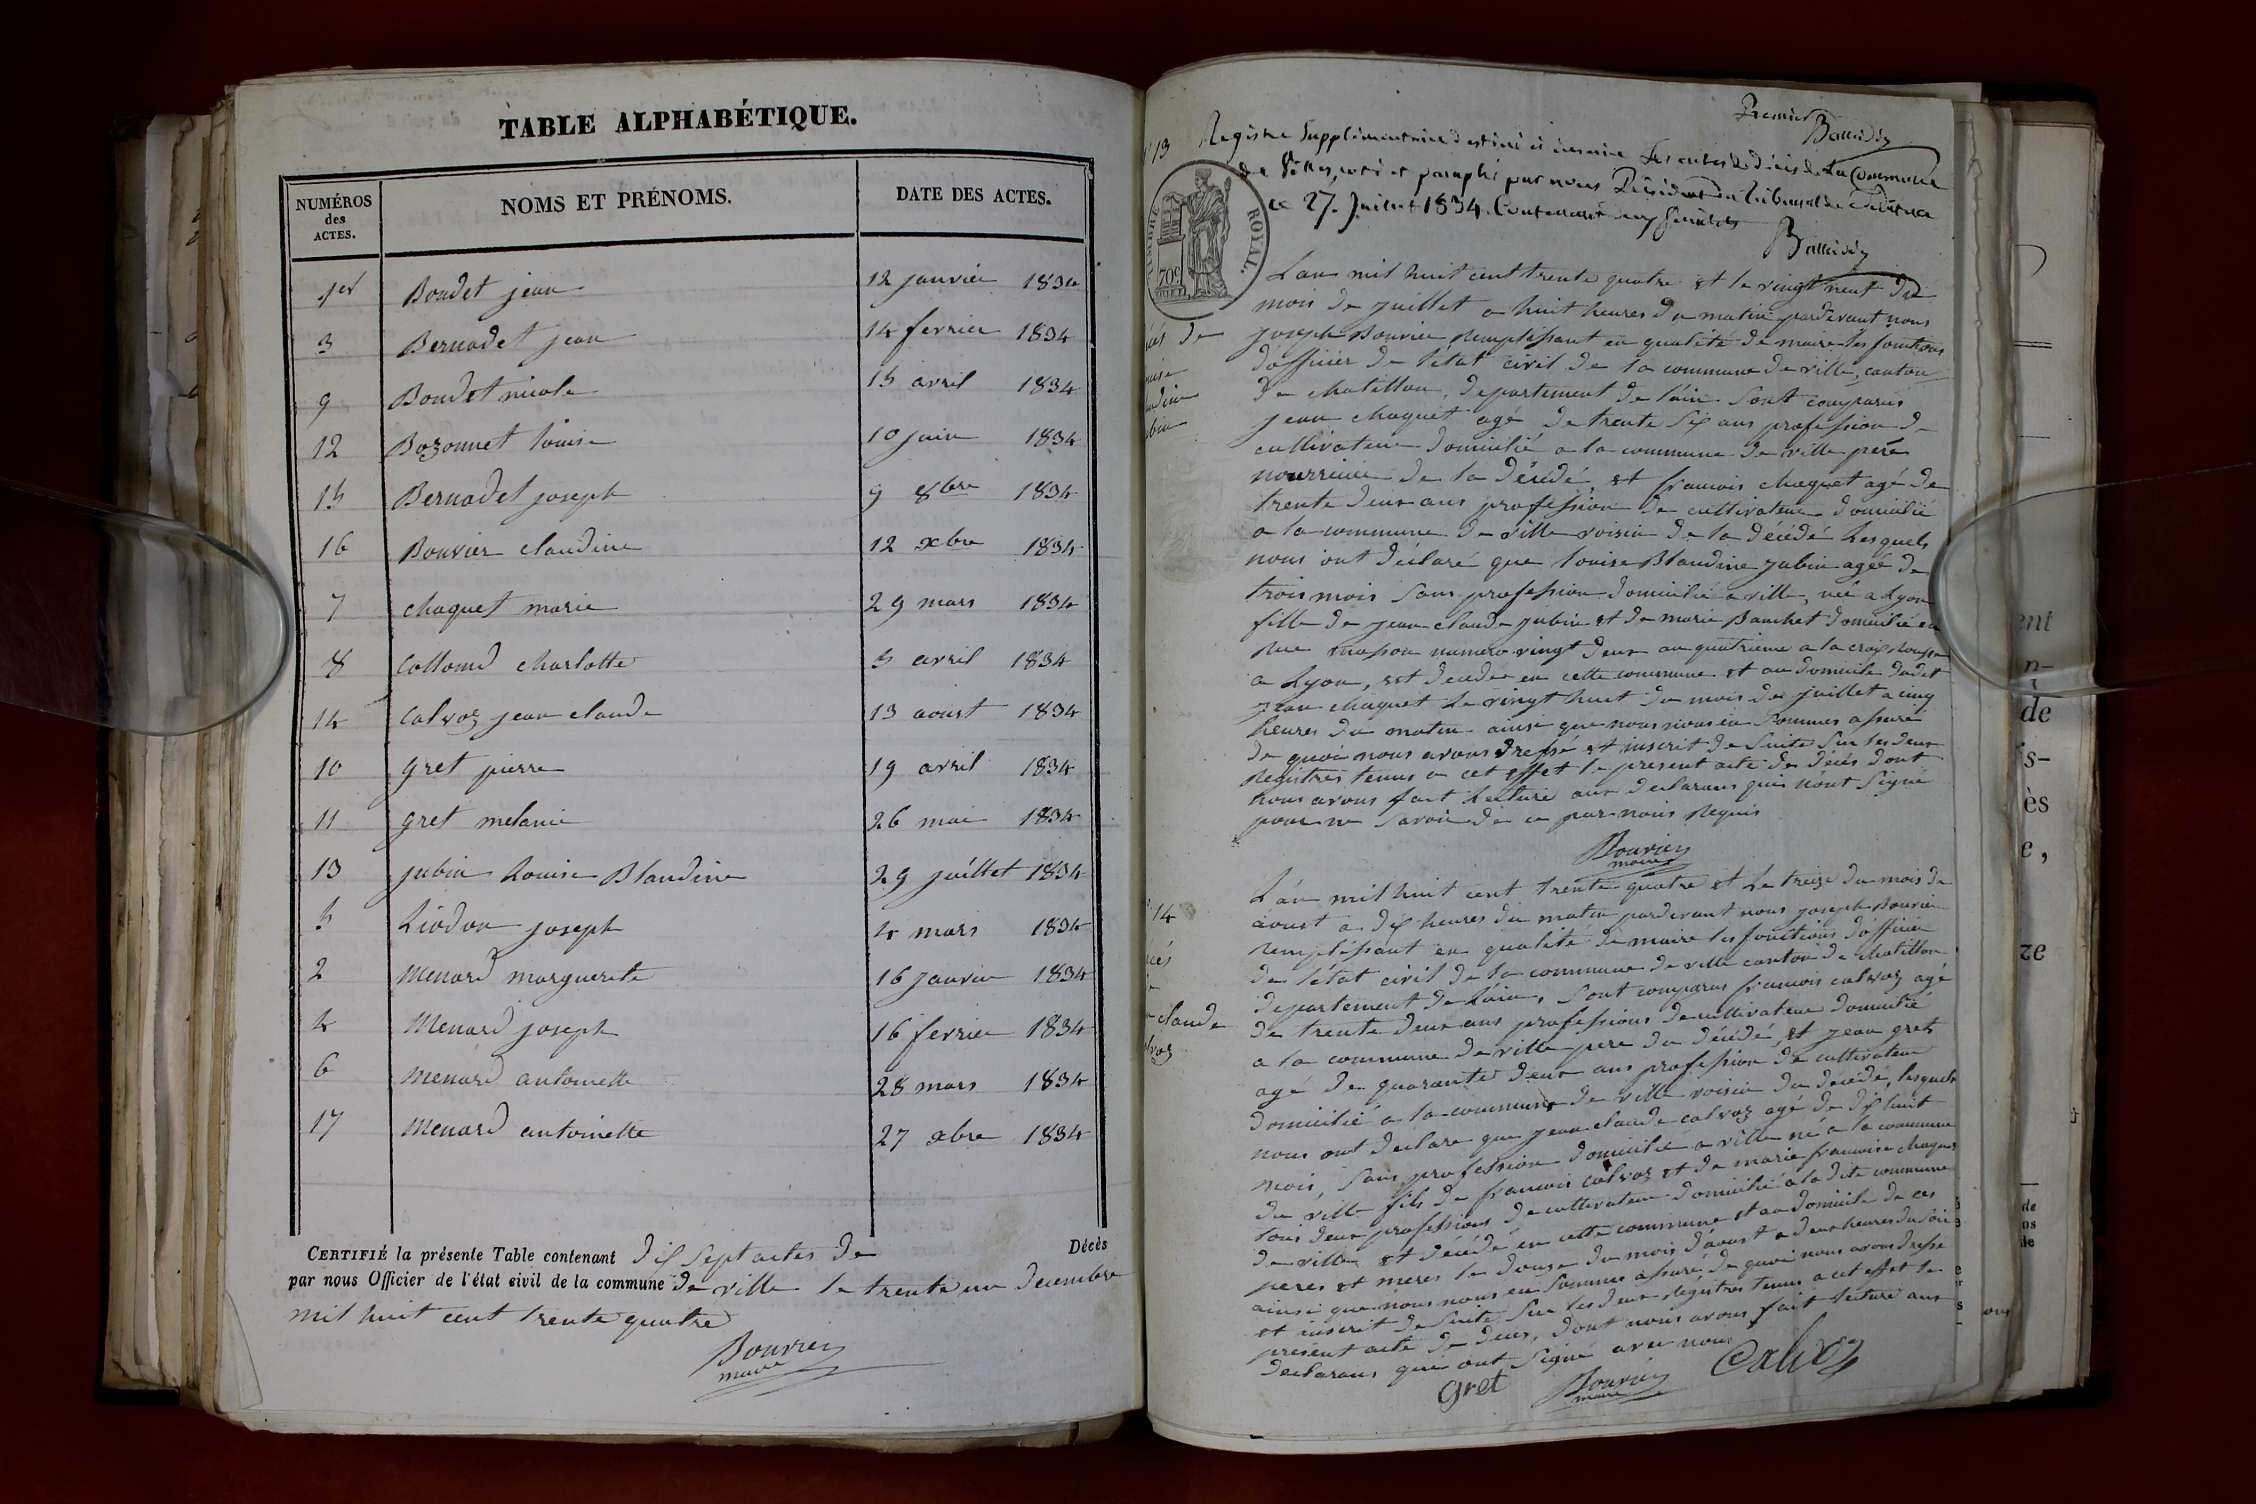 TABLE ALPHABÉTIQUE.
NUMÉROS des ACTES. NOMS ET PRÉNOMS. DATE DES ACTES.
1er Boudet jean 12 janvier 1834
3 Bernadet jean 14 fevrier 1834
9 Boudet nicole 15 avril 1834
12 Bozonnet louise 10 juin 1834
15 Bernadet joseph 9 8bre 1834
16 Bouvier claudine 12 xbre 1834
7 chaquet marie 29 mars 1834
8 Collomd charlotte 5 avril 1834
14 Calvoz jean claude 13 aoust 1834
10 gret pierre 19 avril 1834
11 gret melanie 26 mai 1834
13 jubin Louise Blandine 29 juillet 1834
5 Liodon joseph 4 mars 1834
2 Menard marguerite 16 janvier 1834
4 Menard joseph 16 fevrier 1834
6 Menard antoinette 28 mars 1834
17 Menard antoinette 27 xbre 1834
CERTIFIÉ la présente Table contenant dix sept actes de Décès
par nous Officier de l'état civil de la commune de ville le trente un decembre
mil huit cent trente quatre
Bouvier
maire
Premier
13 Registre Supplémentaire destiné à inscrire les actes de décès de la Commune
de Villes, coté et paraphé par nous Président du tribunal de
ce 27. Juillet 1834. Contenant deux feuillets
TIMBRE ROYAL.
70c
L'an mil huit cent trente quatre et le vingt neuf du
mois de juillet a huit heures du matin pardevant nous
joseph Bouvier remplissant en qualité de maire les fonctions
d'officier de l'état civil de la commune de ville, canton
de chatillon, departement de l'ain Sont comparus
jean chaquet agé de trente Six ans profession de
cultivateur domicilié a la commune de ville pere
nourricier de la décédé et francois chaquet agé de
trente deux ans profession de cultivateur domicilié
a la commune de ville voisin de la décédé Lesquels
nous ont déclaré que louise Blandine jubin agée de
trois mois Sans profession domicilié a ville, née a Lyon
fille de jean claude jubin et de marie Banchet domicilié en
rue masson numero vingt deux au quatrieme a la croix rousse
a Lyon, est decedée en cette commune et au domicile dudit
jean chaquet Le vingt huit du mois de juillet a cinq
heures du matin ainsi que nous nous en Sommes assuré
de quoi nous avons dressé et inscrit de Suite Sur les deux
Registres tenus a cet effet le present acte de décés dont
nous avons fait Lecture aux declarans qui n'ont Signé
pour ne Savoir de ce par nous Requis
Bouvier
maire
14
claude
L'an mil huit cent trente quatre et Le treize du mois de
aoust a dix heures du matin pardevant nous joseph Bouvier
remplissant en qualité de maire les fonctions d'officier
de l'état civil de la commune de ville canton de chatillon
departement de L'ain, Sont comparus francois calvoz agé
de trente deux ans professions de cultivateur domicilié
a la commune de ville pere du décédé, et jean gret
agé de quarante deux ans profession de cultivateur
domicilié a la commune de ville voisin du décédé, lesquels
nous ont declare que jean claude calvoz agé de dix huit
mois, Sans profession domicilié a ville né a la commune
de ville fils de francois calvoz et de marie francoise chaquet
tous deux professions de cultivateur domicilié a la dite commune
de ville est décédé en cette commune et au domicile de ces
peres et meres le douze du mois d'aoust a deux heures du Soir
ainsi que nous nous en Sommes assuré de quoi nous avons dressé
et inscrit de Suite Sur les deux Régistres tenus a cet effet le
present acte de deces, dont nous avons fait lecture aux
declarans qui ont Signé avec nous
gret Bouvier Calvoz
maire